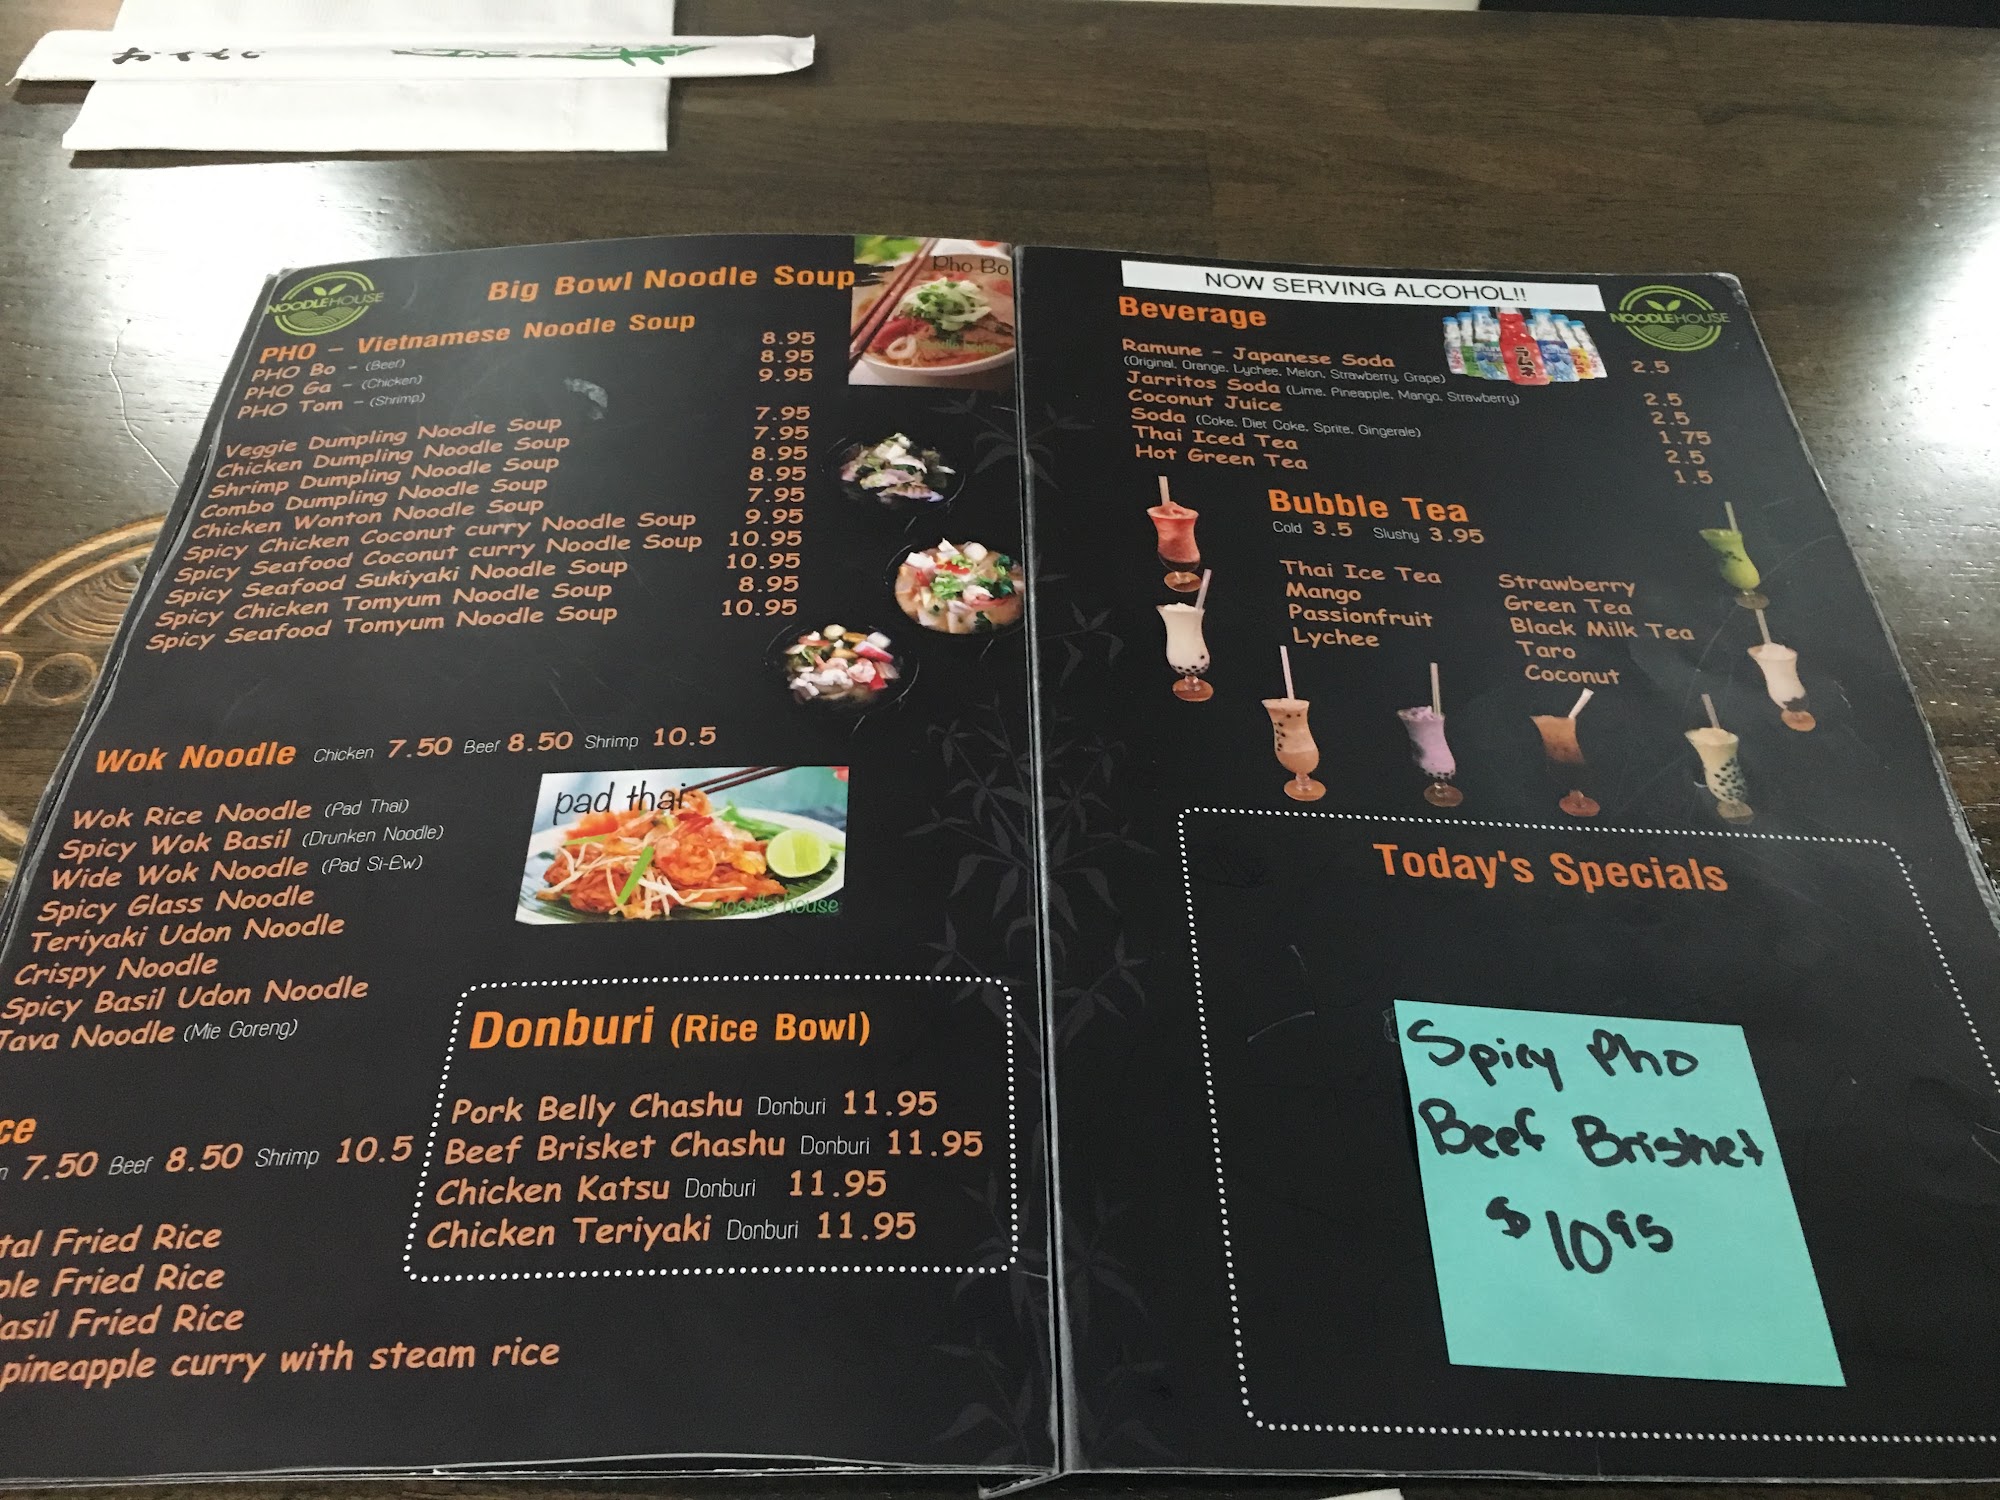 おてもと
NOODLEHOUSE
Big Bowl Noodle Soup
Pho Bo
PHO - Vietnamese Noodle Soup
PHO Bo - (Beef) 8.95
PHO Ga - (Chicken) 8.95
PHO Tom - (Shrimp) 9.95
Veggie Dumpling Noodle Soup 7.95
Chicken Dumpling Noodle Soup 7.95
Shrimp Dumpling Noodle Soup 8.95
Combo Dumpling Noodle Soup 8.95
Chicken Wonton Noodle Soup 7.95
Spicy Chicken Coconut curry Noodle Soup 9.95
Spicy Seafood Coconut curry Noodle Soup 10.95
Spicy Seafood Sukiyaki Noodle Soup 10.95
Spicy Chicken Tomyum Noodle Soup 8.95
Spicy Seafood Tomyum Noodle Soup 10.95
Wok Noodle Chicken 7.50 Beef 8.50 Shrimp 10.5
Wok Rice Noodle (Pad Thai)
Spicy Wok Basil (Drunken Noodle)
Wide Wok Noodle (Pad Si-Ew)
Spicy Glass Noodle
Teriyaki Udon Noodle
Crispy Noodle
Spicy Basil Udon Noodle
Tava Noodle (Mie Goreng)
pad thai
noodle house
Donburi (Rice Bowl)
Pork Belly Chashu Donburi 11.95
Beef Brisket Chashu Donburi 11.95
Chicken Katsu Donburi 11.95
Chicken Teriyaki Donburi 11.95
7.50 Beef 8.50 Shrimp 10.5
Fried Rice
Fried Rice
Fried Rice
pineapple curry with steam rice
NOW SERVING ALCOHOL!!
NOODLEHOUSE
Beverage
Ramune - Japanese Soda 2.5
(Original, Orange, Lychee, Melon, Strawberry, Grape)
Jarritos Soda (Lime, Pineapple, Mango, Strawberry) 2.5
Coconut Juice 2.5
Soda (Coke, Diet Coke, Sprite, Gingerale) 1.75
Thai Iced Tea 2.5
Hot Green Tea 1.5
Bubble Tea
Cold 3.5 Slushy 3.95
Thai Ice Tea
Mango
Passionfruit
Lychee
Strawberry
Green Tea
Black Milk Tea
Taro
Coconut
Today's Specials
Spicy Pho
Beef Brisket
$10.95